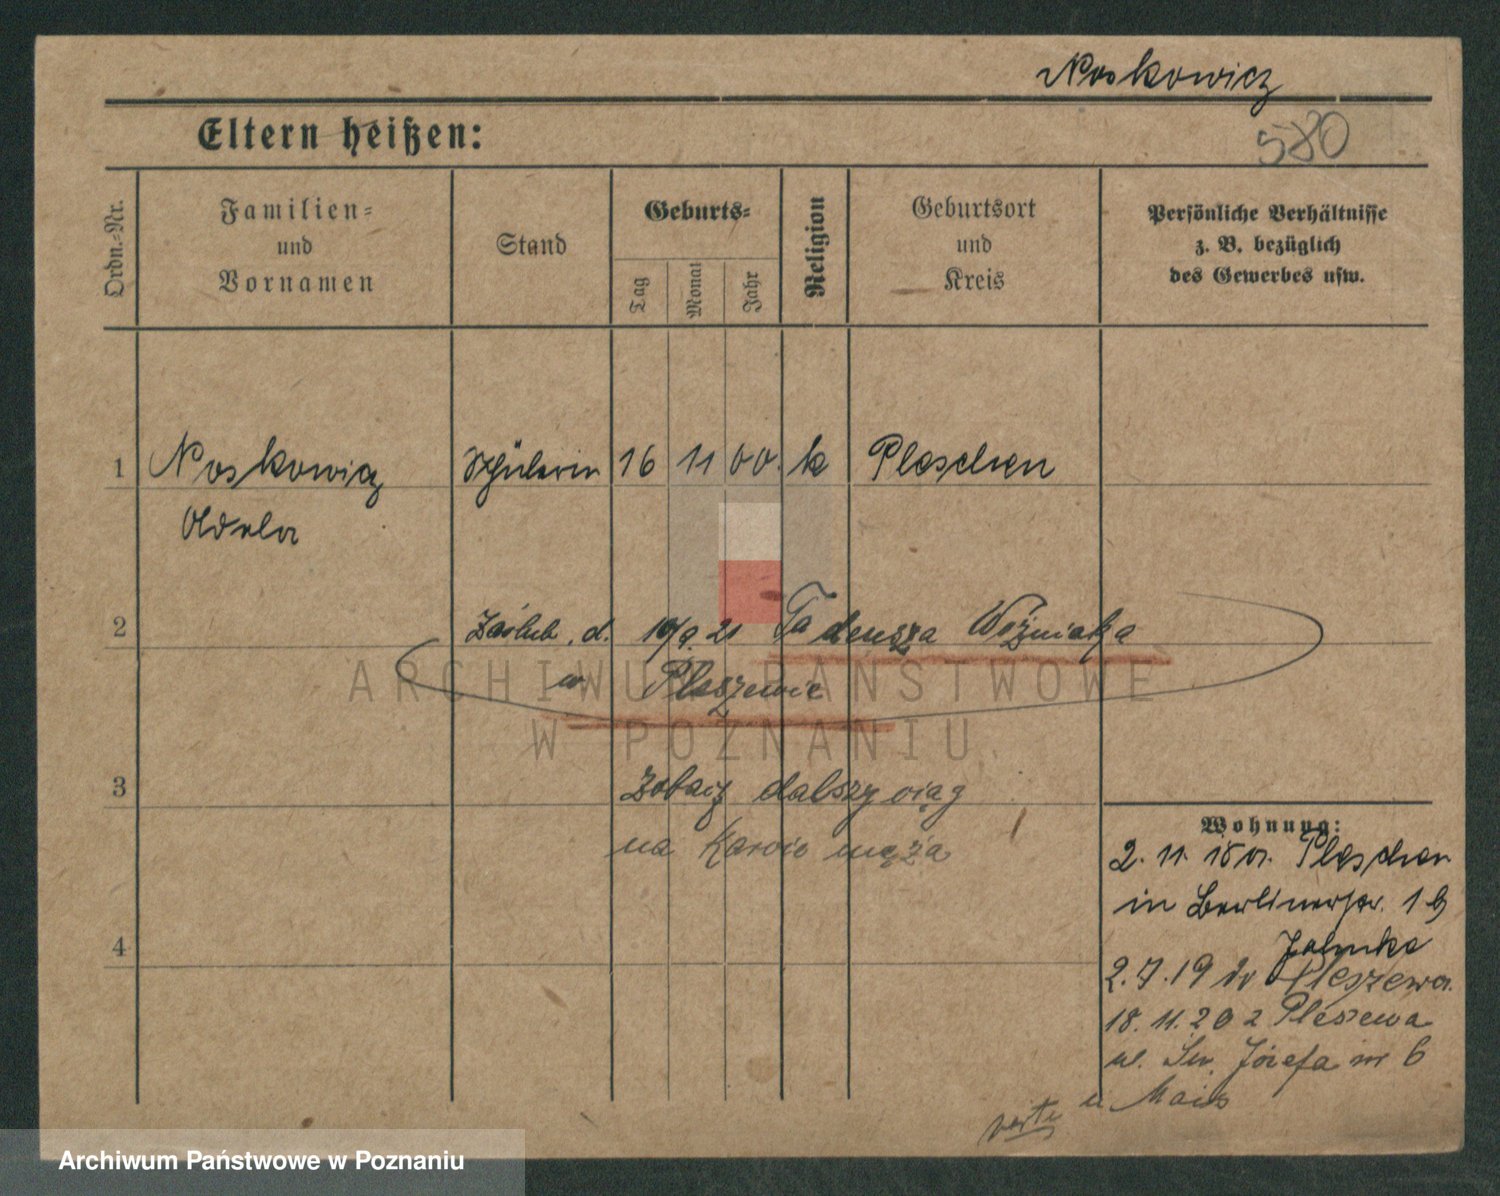 Noskowicz
580
Eltern heißen:
Ordn.=Nr.
Familien=
und
Vornamen
Stand
Geburts=
Tag
Monat
Jahr
Religion
Geburtsort
und
Kreis
Persönliche Verhältnisse
z. B. bezüglich
des Gewerbes usw.
1 Noskowicz Schülerin 16 11 00. k Pleschen
Adela
2 Zaślub. d. 10/9. 21 Tadeusza Woźniaka
w Pleszewie
3 Zobacz dalszy ciąg
na karcie męża
4
Wohnung:
2. 11. 18 Pleschen
in Berlinerstr. 16
2. 7. 19 do Pleszewa.
18. 11. 20 z Pleszewa
ul. Św. Józefa nr 6
u Mais
verte
ARCHIWUM PAŃSTWOWE
W POZNANIU
Archiwum Państwowe w Poznaniu